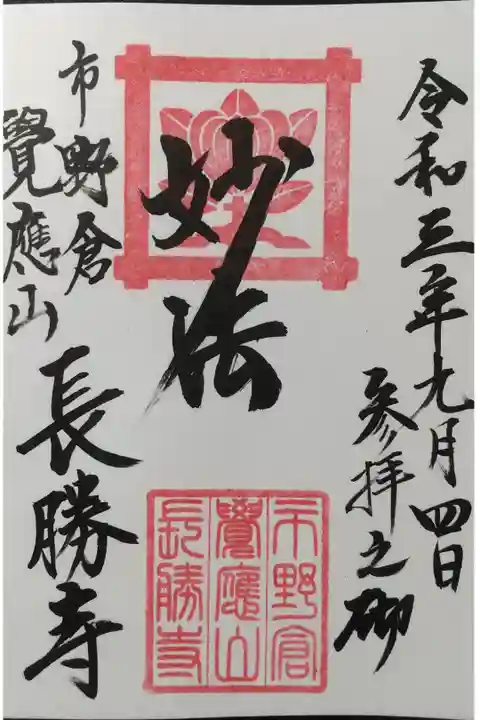 令和三年九月四日
参拝之砌
妙法
市野倉
覺應山
長勝寺
市野倉
覺應山
長勝寺